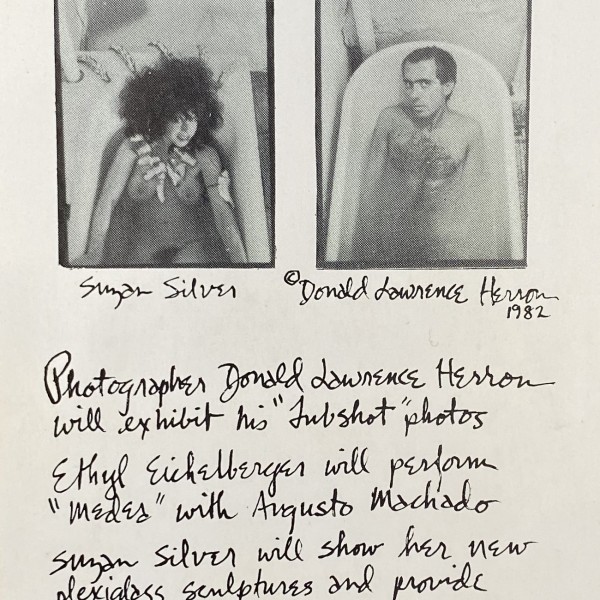 Suzan Silver
©Donald Lawrence Herron
1982
Photographer Donald Lawrence Herron
will exhibit his "Tubshot" photos
Ethyl Eichelberger will perform
"Medea" with Augusto Machado
Suzan Silver will show her new
plexiglass sculptures and provide